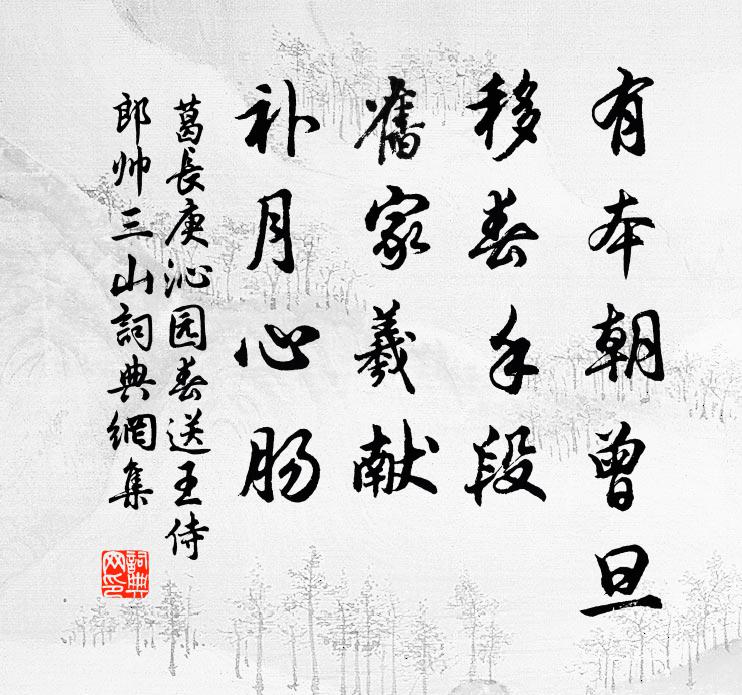 有本朝曾旦
移春手段
舊家羲献
补月心肠
葛長庚沁园春送王侍
郎帅三山詞典網集
詞典網印